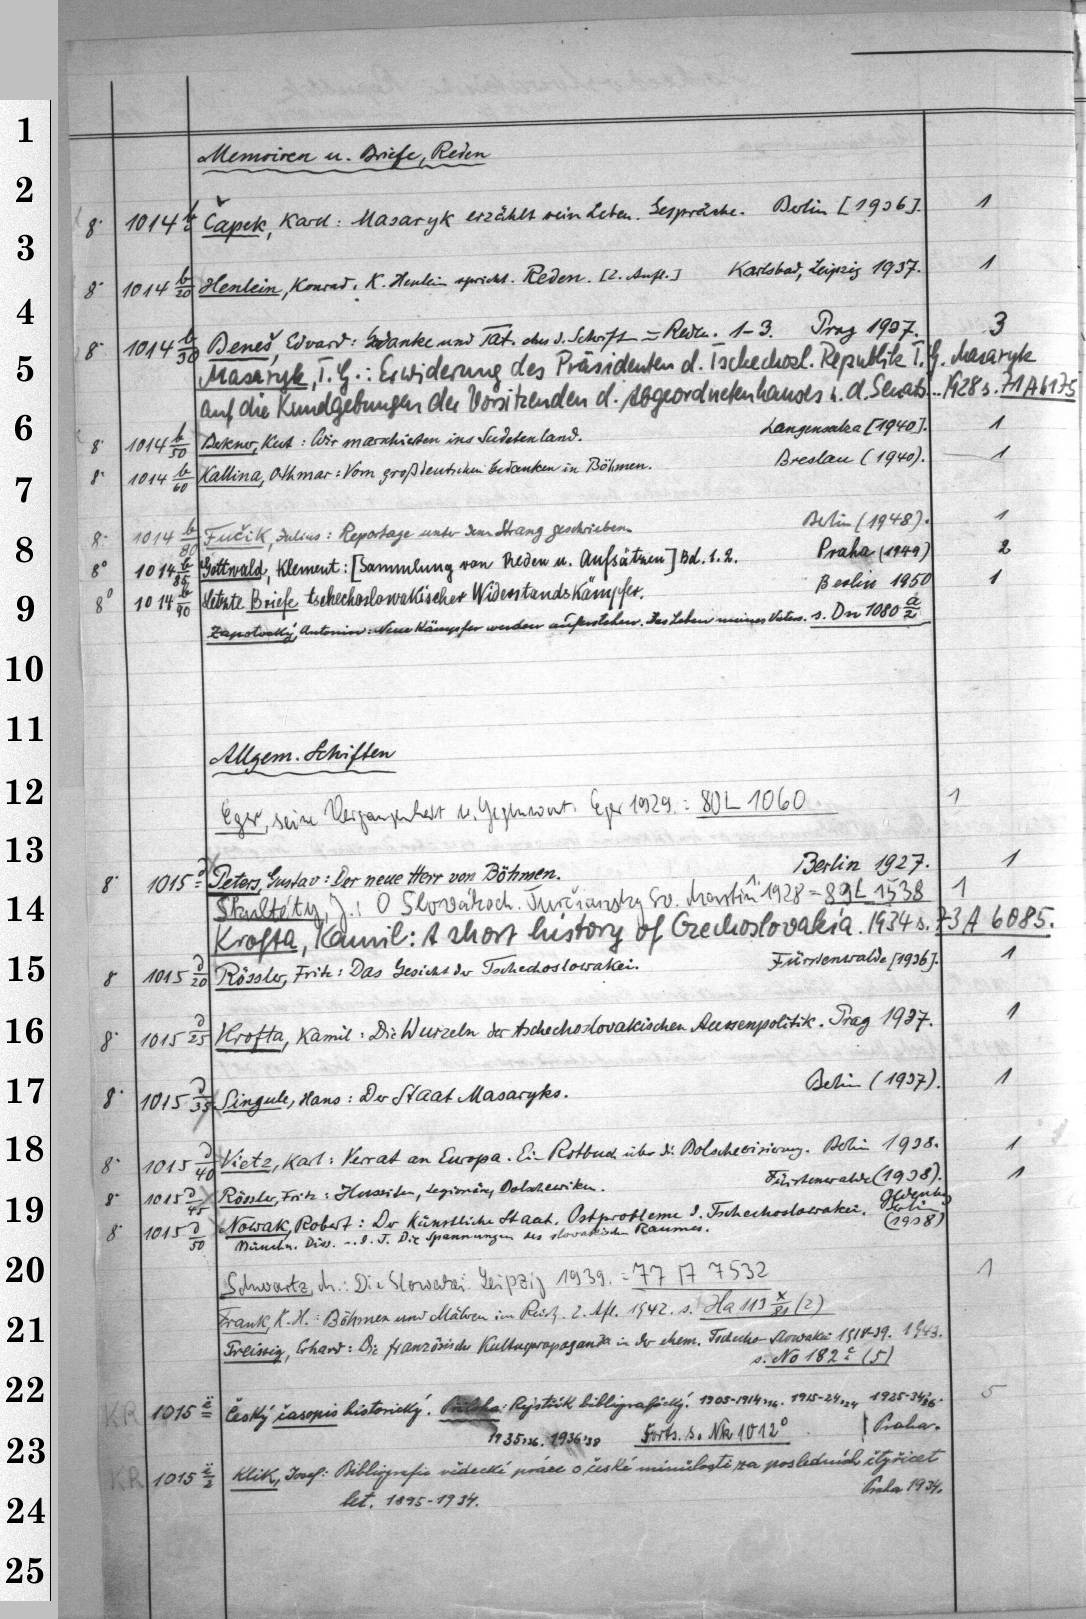 1
Memoiren u. Briefe, Reden
2
8° 1014 b/2 Čapek, Karel: Masaryk erzählt sein Leben. Gespräche. Berlin [1936]. 1
3
8° 1014 b/20 Henlein, Konrad. K. Henlein spricht. Reden. [2. Aufl.] Karlsbad, Leipzig 1937. 1
4
8° 1014 b/30 Beneš, Edvard: Gedanke und Tat. Aus d. Schrift. u. Reden. 1-3. Prag 1937. 3
5
Masaryk, T. G.: Erwiderung des Präsidenten d. Tschechosl. Republik T. G. Masaryk
auf die Kundgebungen der Vorsitzenden d. Abgeordnetenhauses u. d. Senats. 1928 s. 71 A 6175
6
8° 1014 b/50 Kurt: Wir marschierten ins Sudetenland. Langensalza [1940]. 1
8° 1014 b/60 Kallina, Othmar: Vom großdeutschen Gedanken in Böhmen. Breslau (1940). 1
7
8° 1014 b/80 Fučík, Julius: Reportage unter dem Strang geschrieben. Berlin (1948). 1
8
8° 1014 b/85 Gottwald, Klement: [Sammlung von Reden u. Aufsätzen] Bd. 1.2. Praha (1949) 2
8° 1014 b/90 Letzte Briefe tschechoslowakischer Widerstandskämpfer. Berlin 1950 1
9
Zapotocký, Antonin: Neue Kämpfer werden auferstehen. Das Leben meines Vaters. s. Dn 1080 a/2
10
11
Allgem. Schriften
12
Eger, seine Vergangenheit u. Gegenwart. Eger 1929. = 80 L 1060 1
13
8° 1015 d Peters, Gustav: Der neue Herr von Böhmen. Berlin 1927. 1
14
Škultéty, J.: O Slovákoch. Turčiansky Sv. Martin 1928 = 89 L 1538 1
Krofta, Kamil: A short history of Czechoslovakia. 1934 s. 73 A 6085.
15
8° 1015 d/20 Rössler, Fritz: Das Gesicht der Tschechoslowakei. Fürstenwalde [1936]. 1
16
8° 1015 d/25 Krofta, Kamil: Die Wurzeln der tschechoslovakischen Aussenpolitik. Prag 1937. 1
17
8° 1015 d/35 Singule, Hans: Der Staat Masaryks. Berlin (1937). 1
18
8° 1015 d/40 Vietz, Karl: Verrat an Europa. Ein Rotbuch über die Bolschewisierung. Berlin 1938. 1
8° 1015 d/45 Rössler, Fritz: Hussiten, Legionäre, Bolschewiken. Fürstenwalde (1938). 1
19
8° 1015 d/50 Nowak, Robert: Der künstliche Staat. Ostprobleme d. Tschechoslowakei. Oldenburg Berlin (1938)
München. Diss. u. d. T. Die Spannungen des slovakischen Raumes.
20
Schwartz, M.: Die Slowakei. Leipzig 1939. = 77 7532 1
Frank, K. H.: Böhmen und Mähren im Reich. 2. Afl. 1942. s. Ha 113 x/81 (2)
21
Preissig, Erhard: Die französische Kulturpropaganda in der ehem. Tschecho-Slowakei 1918-39. 1943.
s. No 182 c (5)
22
KR 1015 ë Český časopis historický. Příloha: Rejstřík bibliografický. 1905-1914,16. 1915-24,24 1925-34,36. 5
1935,36. 1936,38 Forts. s. Nk 1012° Praha.
23
KR 1015 ë/2 Klik, Josef: Bibliografie vědecké práce o české minulosti za posledních čtyřicet
let. 1895-1934. Praha 1934.
24
25